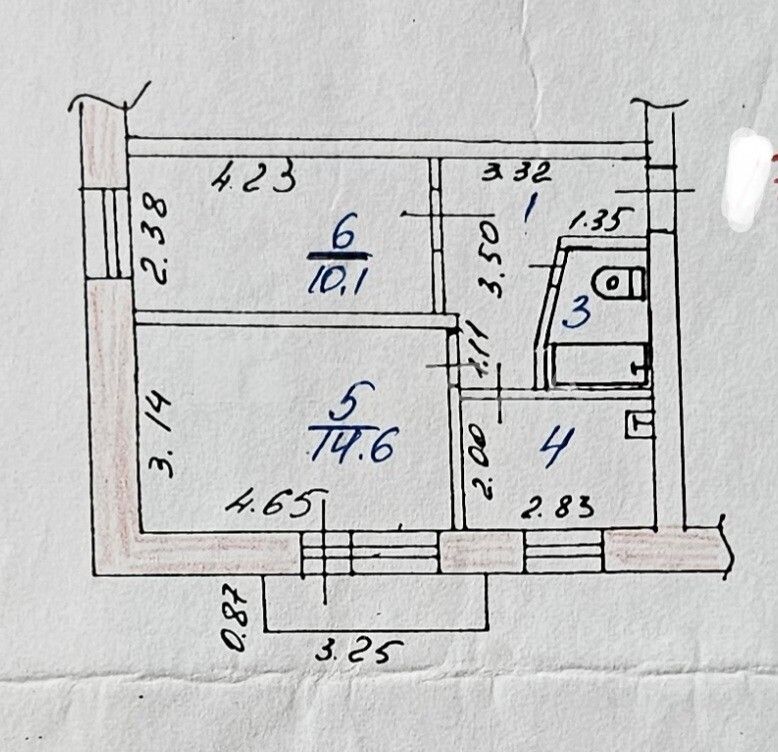 4.23
3.32
1
1.35
2.38
6
10.1
3.50
3
1.11
3.14
5
14.6
2.00
4
4.65
2.83
0.87
3.25